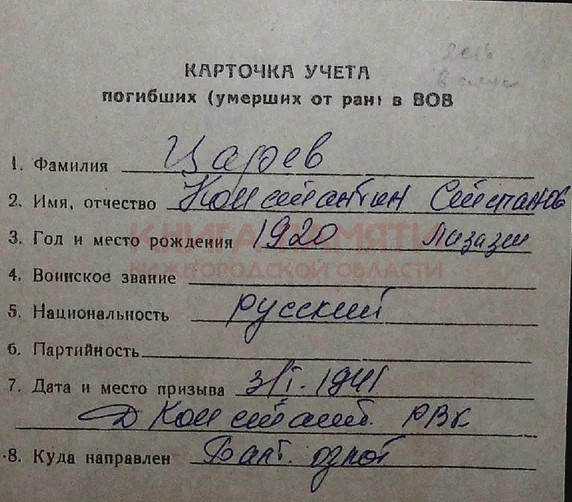 есть
КАРТОЧКА УЧЕТА
погибших (умерших от ран) в ВОВ
1. Фамилия Царев
2. Имя, отчество Константин Степанов
3. Год и место рождения 1920
КНИГА ПАМЯТИ
НИЖЕГОРОДСКОЙ ОБЛАСТИ
4. Воинское звание
5. Национальность русский
6. Партийность
7. Дата и место призыва 3/I-1941
Д Констант. РВК
8. Куда направлен Балт. флот